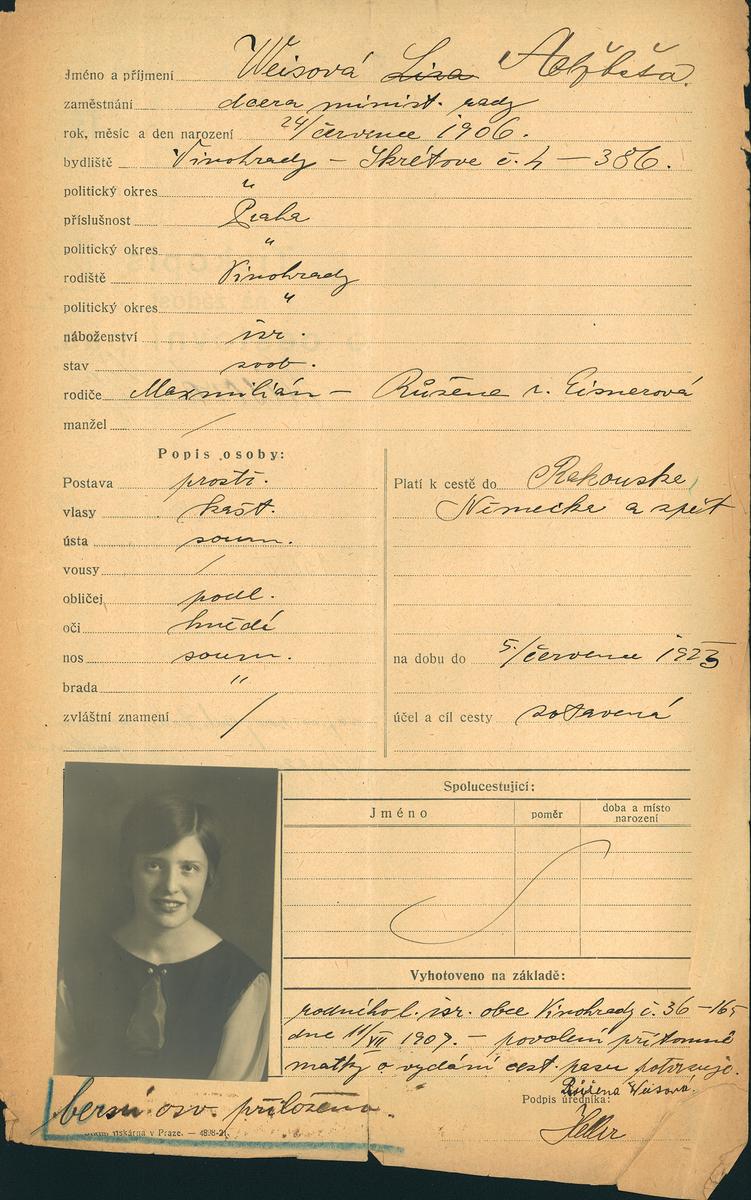 Jméno a příjmení Weisová Liza Alžběta.
zaměstnání dcera minist. rady
rok, měsíc a den narození 24/července 1906.
bydliště Vinohrady – Skrétova č. 4 – 386.
politický okres "
příslušnost Praha
politický okres "
rodiště Vinohrady
politický okres "
náboženství isr.
stav svob.
rodiče Maxmilián – Růžena r. Eisnerová
manžel /
Popis osoby:
Postava prostř.
vlasy kašt.
ústa soum.
vousy /
obličej podl.
oči hnědé
nos soum.
brada "
zvláštní znamení /
Platí k cestě do Rakouska,
Německa a zpět
na dobu do 5/července 1923
účel a cíl cesty zotavená
Spolucestující:
Jméno poměr doba a místo narození
Vyhotoveno na základě:
rodného l. isr. obce Vinohrady č. 36 – 165
dne 11/VII 1907. – povolení přítomné
matky o vydání cest. pasu potvrzuje.
Růžena Weisová.
Podpis úředníka:
Heller
berní osv. přiložena.
tiskárna v Praze. — 4898-21.